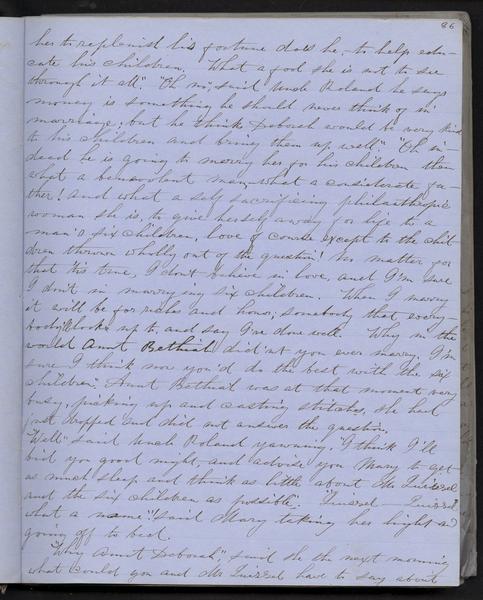 86
her to replenish his fortune does he, to help edu-
cate his children. What a fool she is not to see
through it all." "Oh no," said Uncle Roland he says
money is something he should never think of in
marriage; but he thinks Deborah would be very kind
to his children and bring them up well." "Oh in-
deed he is going to marry her for his children then
what a benevolent man, what a considerate fa-
ther! And what a self sacrificing philanthropic
woman she is, to give herself away for life to a
man's six children, love of course except to the chil-
dren thrown wholly out of the question! No matter for
that tho' true, I don't believe in love, and I'm sure
I don't in marrying six children. When I marry
it will be for riches and honor; somebody that every-
body looks up to and say I've done well. Why in the
world Aunt Bethiah did'nt you ever marry, I'm
sure I think now you'd do the best with the six
children. Aunt Bethiah was at that moment very
busy, picking up and casting stitches, she had
just dropped and did not answer the question.
"Well" said Uncle Roland yawning, "I think I'll
bid you good night, and advise you Mary to get
as much sleep and think as little about Mr
and the six children as possible".
what a name!" said Mary taking her light and
going off to bed.
"Why Aunt Deborah" said she the next morning
what could you and Mr have to say about